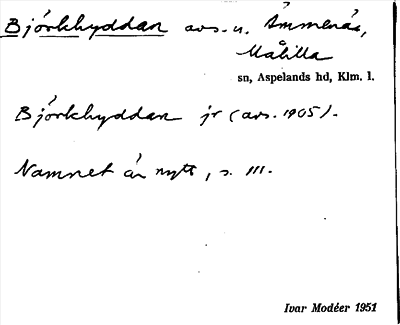 Björkhyddan avs. u. Ämmenäs,
Målilla
sn, Aspelands hd, Klm. l.
Björkhyddan jr (avs. 1905).
Namnet är nytt, s. III.
Ivar Modéer 1951